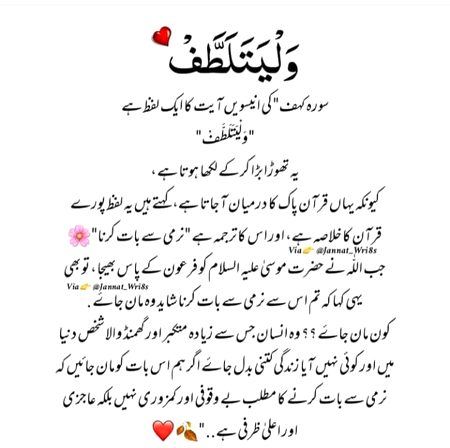 وَلْيَتَلَطَّفْ
سورہ کہف" کی انیسویں آیت کا ایک لفظ ہے
"وَلْيَتَلَطَّفْ"
یہ تھوڑا بڑا کر کے لکھا ہوتا ہے،
کیونکہ یہاں قرآن پاک کا درمیان آ جاتا ہے، کہتے ہیں یہ لفظ پورے
قرآن کا خلاصہ ہے، اور اس کا ترجمہ ہے "نرمی سے بات کرنا" 🌸
Via 👉 @Jannat_Wri8s
جب اللہ نے حضرت موسیٰ علیہ السلام کو فرعون کے پاس بھیجا، تو بھی
Via 👉 @Jannat_Wri8s
یہی کہا کہ تم اس سے نرمی سے بات کرنا شاید وہ مان جائے.
کون مان جائے؟؟ وہ انسان جس سے زیادہ متکبر اور گھمنڈ والا شخص دنیا
میں اور کوئی نہیں آیا زندگی کتنی بدل جائے اگر ہم اس بات کو مان جائیں کہ
نرمی سے بات کرنے کا مطلب بے وقوفی اور کمزوری نہیں بلکہ عاجزی
اور اعلیٰ ظرفی ہے.." 🍂❤️